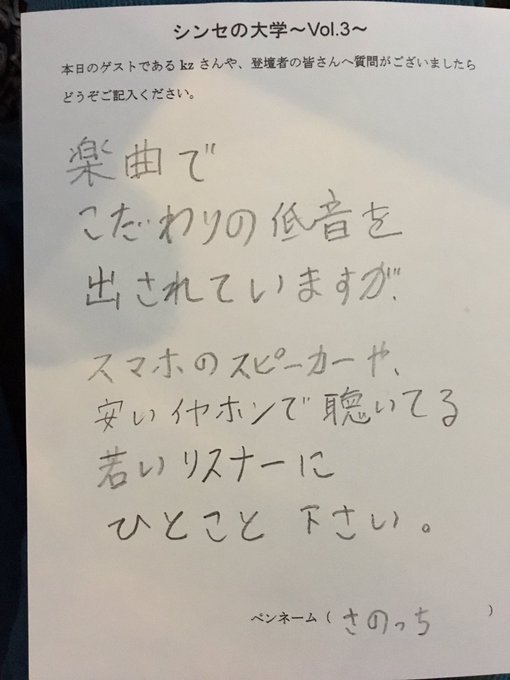 シンセの大学～Vol.3～
本日のゲストである kz さんや、登壇者の皆さんへ質問がございましたら
どうぞご記入ください。
楽曲で
こだわりの低音を
出されていますが、
スマホのスピーカーや、
安いイヤホンで聴いてる
若いリスナーに
ひとこと下さい。
ペンネーム（ さのっち ）